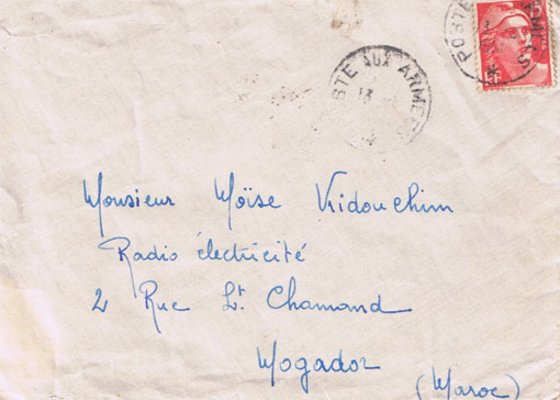 POSTE AUX ARMEES
POSTE AUX ARMEES
13
Monsieur Moïse Kidouchim
Radio électricité
2 Rue Lt. Chamand
Mogador
(Maroc)